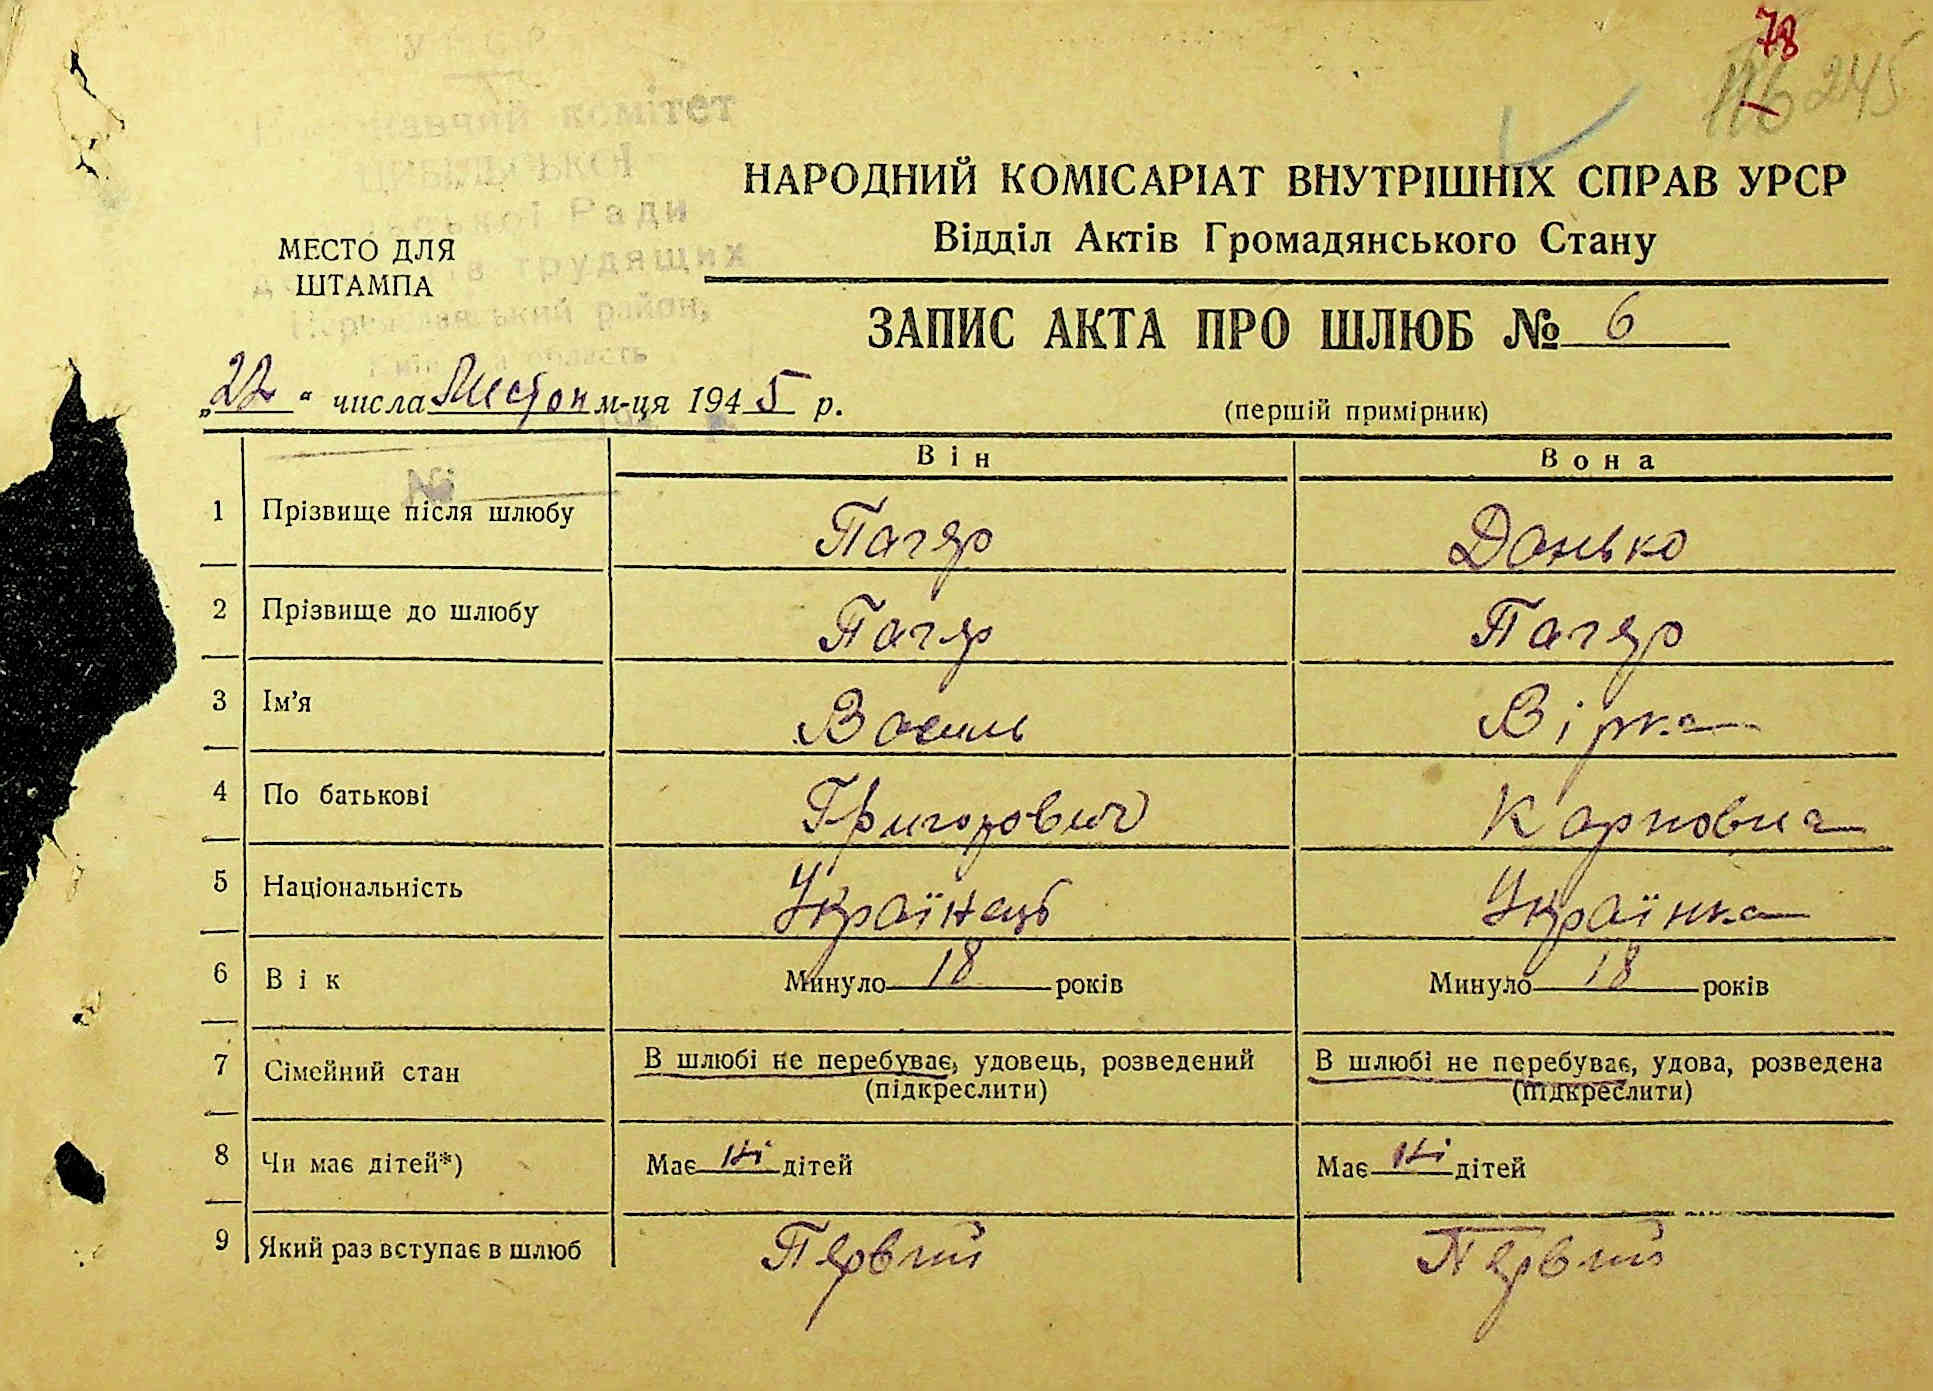 78
116 245
комітет
ЦИБЛІВСЬКОЇ
Ради
трудящих
район,
область
НАРОДНИЙ КОМІСАРІАТ ВНУТРІШНІХ СПРАВ УРСР
Відділ Актів Громадянського Стану
МЕСТО ДЛЯ
ШТАМПА
ЗАПИС АКТА ПРО ШЛЮБ № 6
„22“ числа Листоп м-ця 1945 р.
(першій примірник)
№
Він Вона
1 Прізвище після шлюбу Пагяр Данько
2 Прізвище до шлюбу Пагяр Пагяр
3 Ім'я Василь Вірка
4 По батькові Григорович Карповна
5 Національність Українець Українка
6 Вік Минуло 18 років Минуло 18 років
7 Сімейний стан В шлюбі не перебуває, удовець, розведений В шлюбі не перебуває, удова, розведена
(підкреслити) (підкреслити)
8 Чи має дітей*) Має ні дітей Має ні дітей
9 Який раз вступає в шлюб Первий Первий